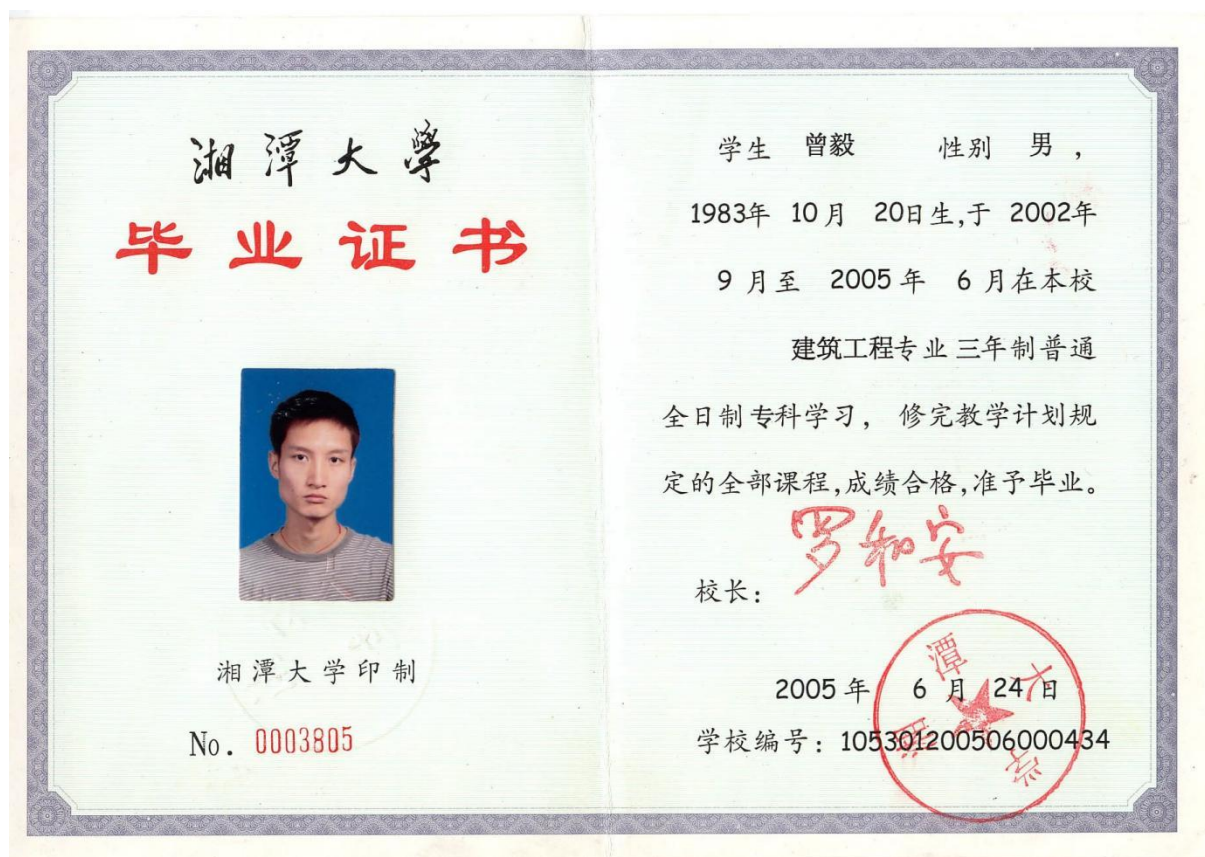 湘潭大學
毕业证书
湘潭大学印制
No. 0003805
学生 曾毅 性别 男，
1983年 10月 20日生,于 2002年
9 月至 2005 年 6 月在本校
建筑工程专业 三年制普通
全日制 专科学习， 修完教学计划规
定的全部课程,成绩合格,准予毕业。
校长：罗和安
2005 年 6 月 24 日
学校编号：105301200506000434
湘潭大学